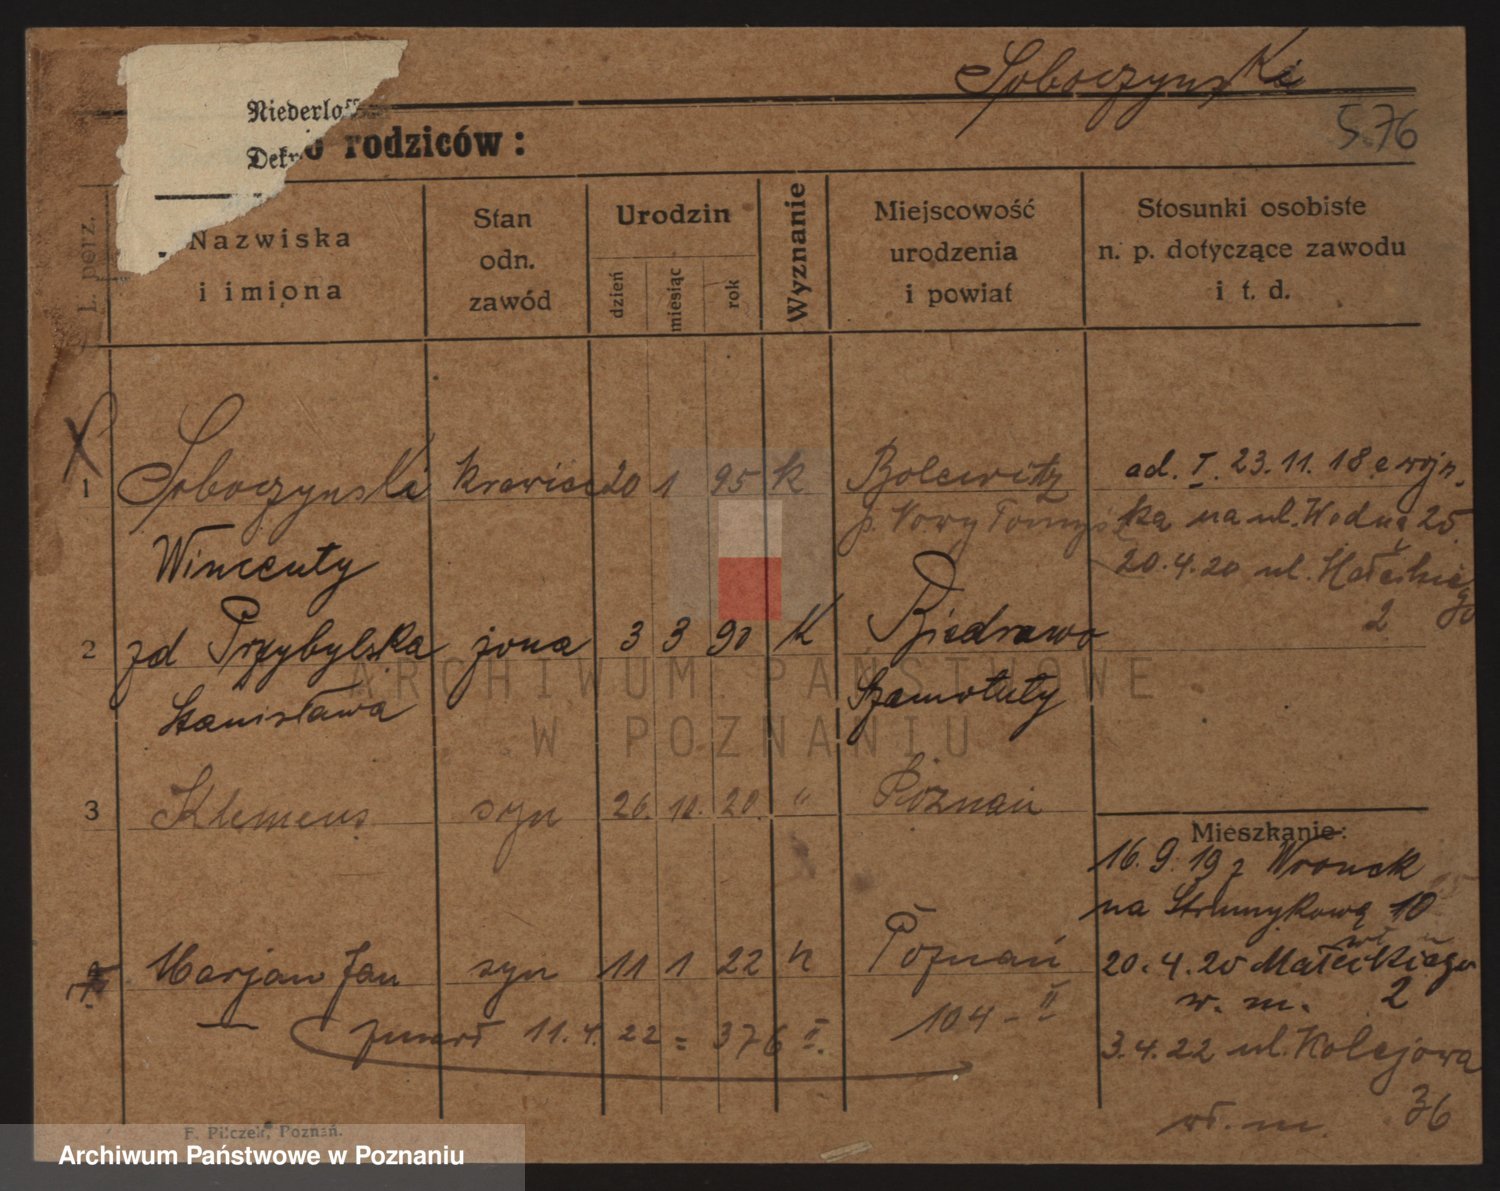 Soboczynski
576
Niederlo
Dekr
o rodziców:
L. porz.
Nazwiska
i imiona
Stan
odn.
zawód
Urodzin
dzień
miesiąc
rok
Wyznanie
Miejscowość
urodzenia
i powiat
Stosunki osobiste
n. p. dotyczące zawodu
i t. d.
1 Soboczynski krawiec 20 1 95 k Bolewitz ad. I. 23.11.18 z wojs.
p. Nowy Tomyśl ka na ul. Wodną 25
Wincenty 20.4.20 ul. Małeckiego
2
2 zd Przybylska żona 3 3 90 K Biedrowo
Stanisława Szamotuły
3 Klemens syn 26. 10. 20. " Poznań
Mieszkanie:
16.9.19 z Wronek
na Strumykową 10
Marjan Jan syn 11 1 22 k Poznań 20.4.20 Małeckiego
w. m. 2
— zmarł 11.4.22 = 376 II. 104-II
3.4.22 ul. Kolejowa
36
wł. m.
F. Pilczek, Poznań.
ARCHIWUM PAŃSTWOWE
W POZNANIU
Archiwum Państwowe w Poznaniu